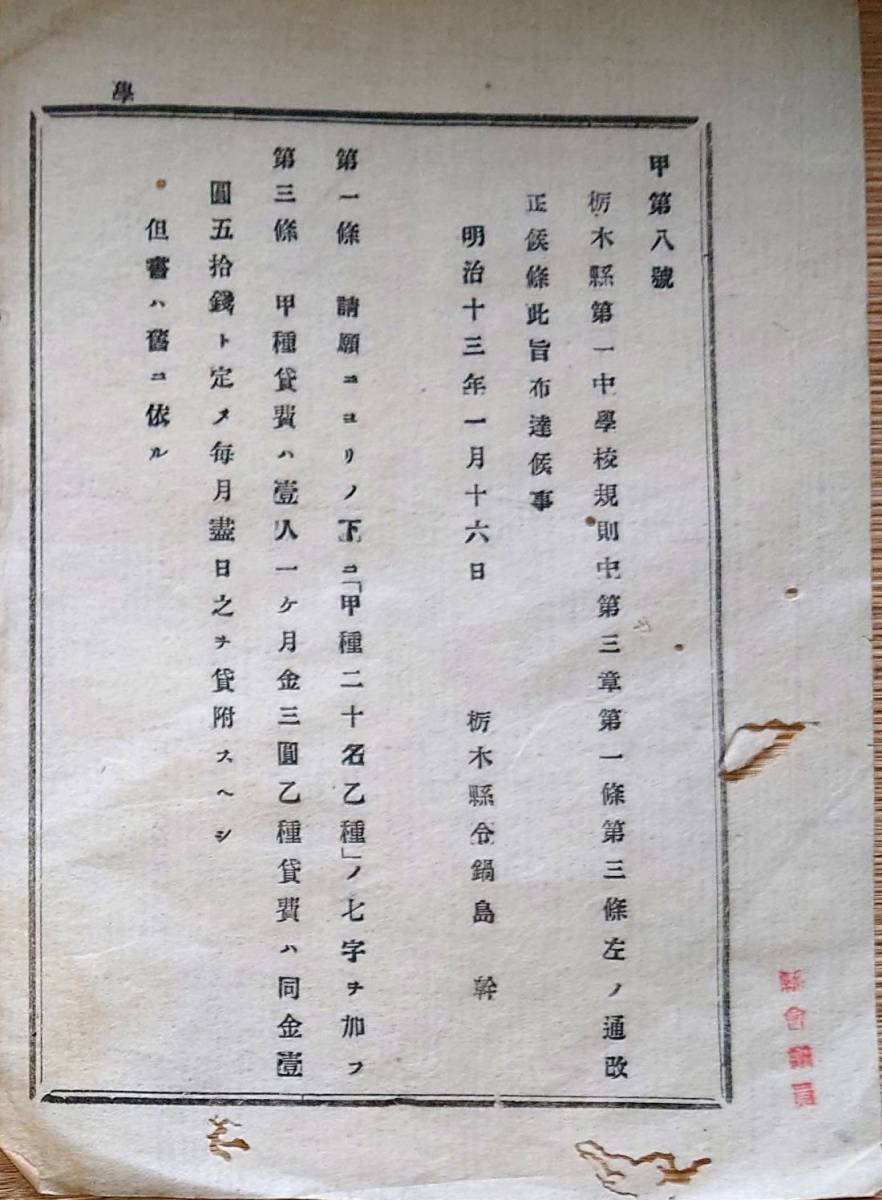 甲第八號
栃木縣第一中學校規則中第三章第一條第三條左ノ通改
正候條此旨布達候事
明治十三年一月十六日　栃木縣令鍋島　幹
第一條　請願ニヨリノ下ニ「甲種二十名乙種」ノ七字ヲ加フ
第三條　甲種貸費ハ壹人一ケ月金三圓乙種貸費ハ同金壹
圓五拾錢ト定メ毎月盡日之ヲ貸附スヘシ
但書ハ舊ニ依ル
學
縣會議員